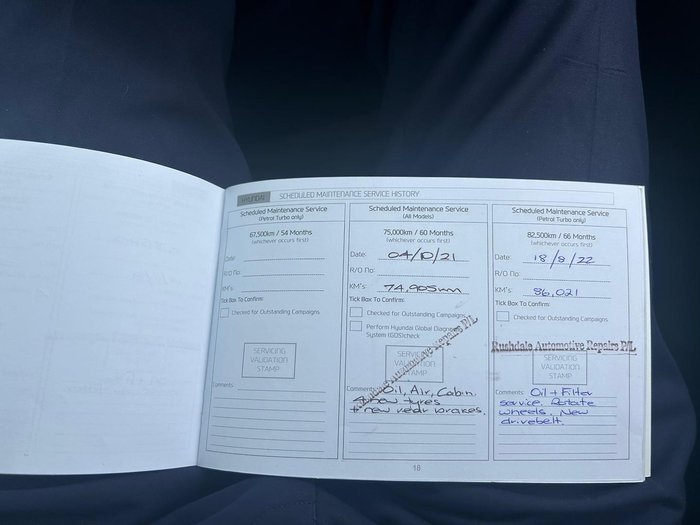 HYUNDAI SCHEDULED MAINTENANCE SERVICE HISTORY
Scheduled Maintenance Service
(Petrol Turbo only)
67,500km / 54 Months
(whichever occurs first)
Date:
R/O No:
KM's:
Tick Box To Confirm:
Checked for Outstanding Campaigns
SERVICING
VALIDATION
STAMP
Comments:
Scheduled Maintenance Service
(All Models)
75,000km / 60 Months
(whichever occurs first)
Date: 04/10/21
R/O No:
KM's: 74,905km
Tick Box To Confirm:
Checked for Outstanding Campaigns
Perform Hyundai Global Diagnostic
System (GDS)check
Rushdale Automotive Repairs P/L
SERVICING
VALIDATION
STAMP
Comments: Oil, Air, Cabin.
new tyres
+ new rear brakes.
Scheduled Maintenance Service
(Petrol Turbo only)
82,500km / 66 Months
(whichever occurs first)
Date: 18/8/22
R/O No:
KM's: 86,021
Tick Box To Confirm:
Checked for Outstanding Campaigns
Rushdale Automotive Repairs P/L
SERVICING
VALIDATION
STAMP
Comments: Oil + Filter
service. Rotate
wheels. New
drivebelt.
18